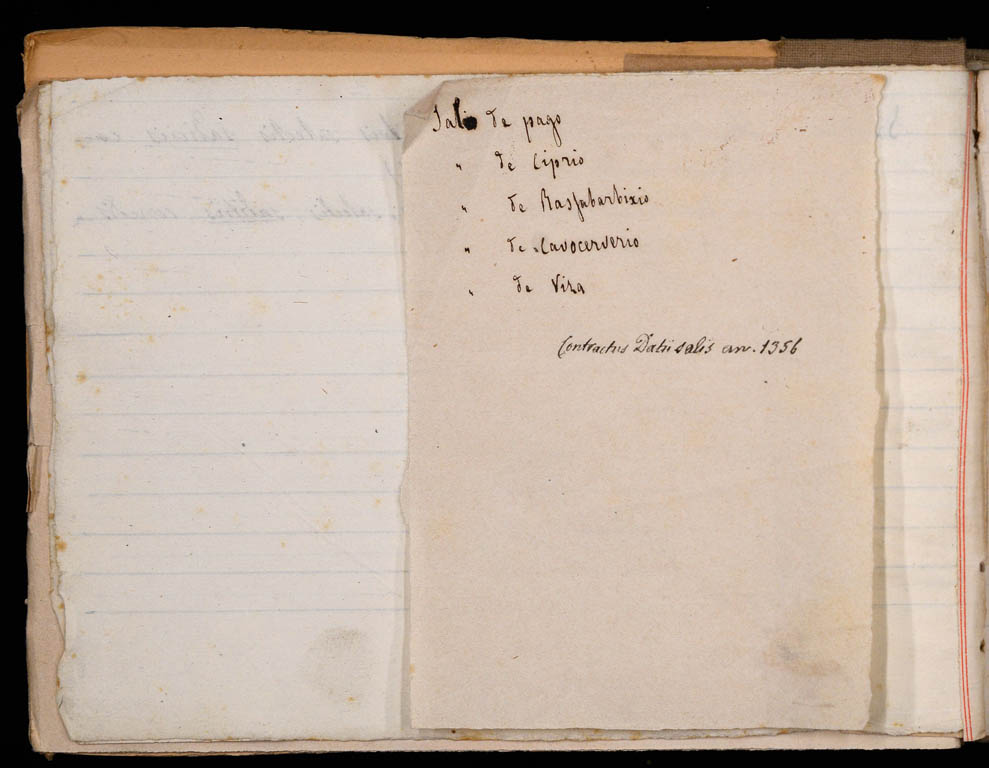 Salis de pago
" de Ciprio
" de Raspabarbixio
" de Cavocerverio
" de Viza
Contractus Datii salis an. 1356